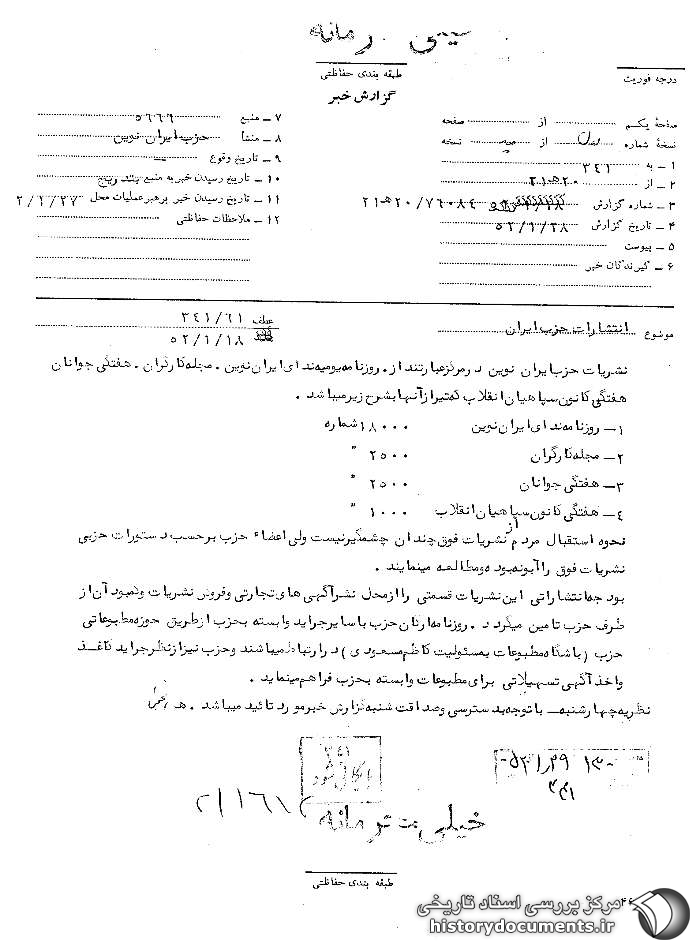 خیلی محرمانه
طبقه بندی حفاظتی
درجه فوریت
گزارش خبر
صفحهٔ یکم از صفحه
نسخهٔ شماره از نسخه
۱ــ به ۳۴۱
۲ــ از ۲۰ ه‍ ۲۱
۳ــ شماره گزارش ۲۱ه‍ ۲۰/۷۶۰۸۴
۴ــ تاریخ گزارش ۵۲/۱/۲۸
۵ــ پیوست
۶ــ گیرندگان خبر
۷ــ منبع ۵۶۶۹
۸ــ منشأ حزب ایران نوین
۹ــ تاریخ وقوع
۱۰ــ تاریخ رسیدن خبر به منبع بتدریج
۱۱ــ تاریخ رسیدن خبر برهبر عملیات محل ۲/۱/۲۷
۱۲ــ ملاحظات حفاظتی
موضوع انتشارات حزب ایران
عطف ۳۴۱/۶۱
۵۲/۱/۱۸
نشریات حزب ایران نوین در مرکز عبارتند از . روزنامه یومیه ندای ایران نوین . مجله کارگران . هفتگی جوانان
هفتگی کانون سپاهیان انقلاب که تیراژ آنها بشرح زیر میباشد .
۱ــ روزنامه ندای ایران نوین ۱۸۰۰۰ شماره
۲ــ مجله کارگران ۲۵۰۰ "
۳ــ هفتگی جوانان ۲۵۰۰ "
۴ــ هفتگی کانون سپاهیان انقلاب ۱۰۰۰ "
نحوه استقبال مردم از نشریات فوق چندان چشمگیر نیست ولی اعضاء حزب برحسب دستورات حزبی
نشریات فوق را آبونه بوده و مطالعه مینمایند .
بودجه انتشاراتی این نشریات قسمتی را از محل نشر آگهی های تجارتی و فروش نشریات و کمبود آن از
طرف حزب تامین میگردد . روزنامه ارگان حزب با سایر جراید وابسته به حزب از طریق حوزه مطبوعاتی
حزب (باشگاه مطبوعات به مسئولیت کاظم مسعودی) در ارتباط میباشند و حزب نیز از نظر جراید کاغذ
و اخذ آگهی تسهیلاتی برای مطبوعات وابسته به حزب فراهم مینماید .
نظریه چهارشنبه ــ با توجه به دسترسی و صداقت شنبه گزارش خبر مورد تائید میباشد . ه‍
۳۴۱
بایگانی شود
۵۲/۱/۲۹
۳۴۱
خیلی محرمانه
طبقه بندی حفاظتی
۴۶
مرکز بررسی اسناد تاریخی
historydocuments.ir